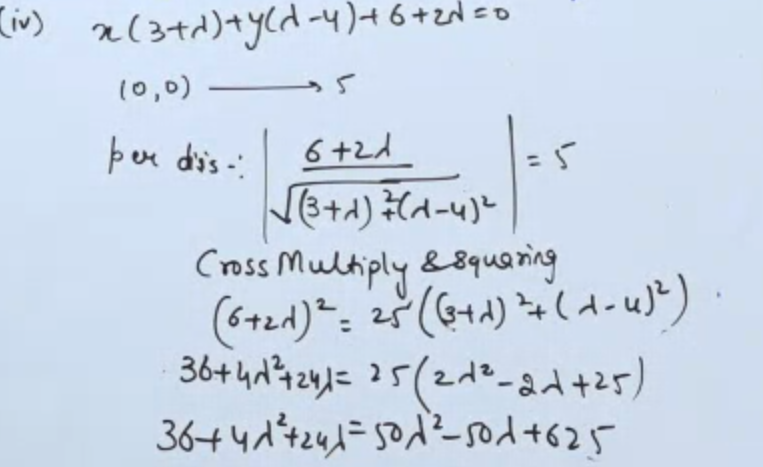 (iv) x(3+λ)+y(λ-4)+6+2λ=0
(0,0) ⟶ 5
per dis-: |6+2λ / √((3+λ)²+(λ-4)²)| = 5
Cross Multiply & squaring
(6+2λ)² = 25((3+λ)²+(λ-4)²)
36+4λ²+24λ = 25(2λ²-2λ+25)
36+4λ²+24λ = 50λ²-50λ+625